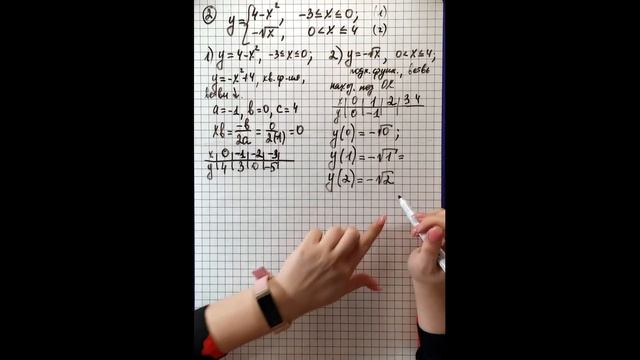 ② y={4-x², -3≤x≤0; (1)
-√x, 0<x≤4 (2)
1) y=4-x², -3≤x≤0;
y=-x²+4, кв. ф-ия,
ветви ↓.
a=-1, b=0, c=4
xв=-b/2a=0/2(-1)=0
x 0 -1 -2 -3
y 4 3 0 -5
2) y=-√x, 0<x≤4;
функ., ветвь
наход. под OX
x 0 1 2 3 4
y 0 -1
y(0)=-√0;
y(1)=-√1=
y(2)=-√2